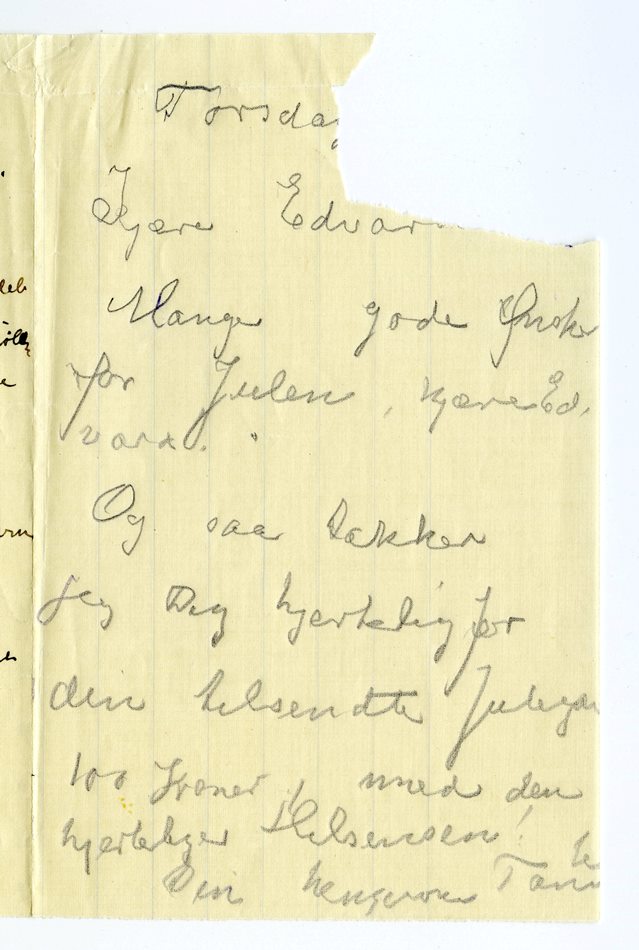 Torsdag
Kjære Edvard
Mange gode Ønsker
for Julen, kjære Ed.
vard.
Og saa takker
jeg Dig hjertelig for
den tilsendte Julega
100 Kroner, med den
hjerteliger Hilsensen!
Din hengivne Tan